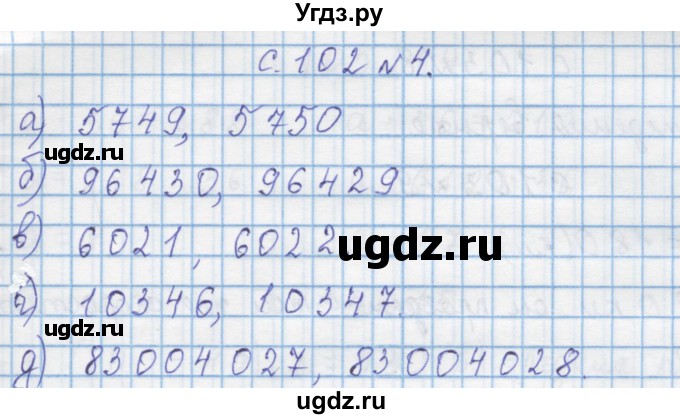 Угдз.ру
с. 102 № 4.
а) 5749, 5750
ugdz.ru
б) 96430, 96429
ugdz.ru
в) 6021, 6022
ugdz.ru
г) 10346, 10347.
ugdz.ru
ugdz.ru
д) 83004027, 83004028.
ugdz.ru